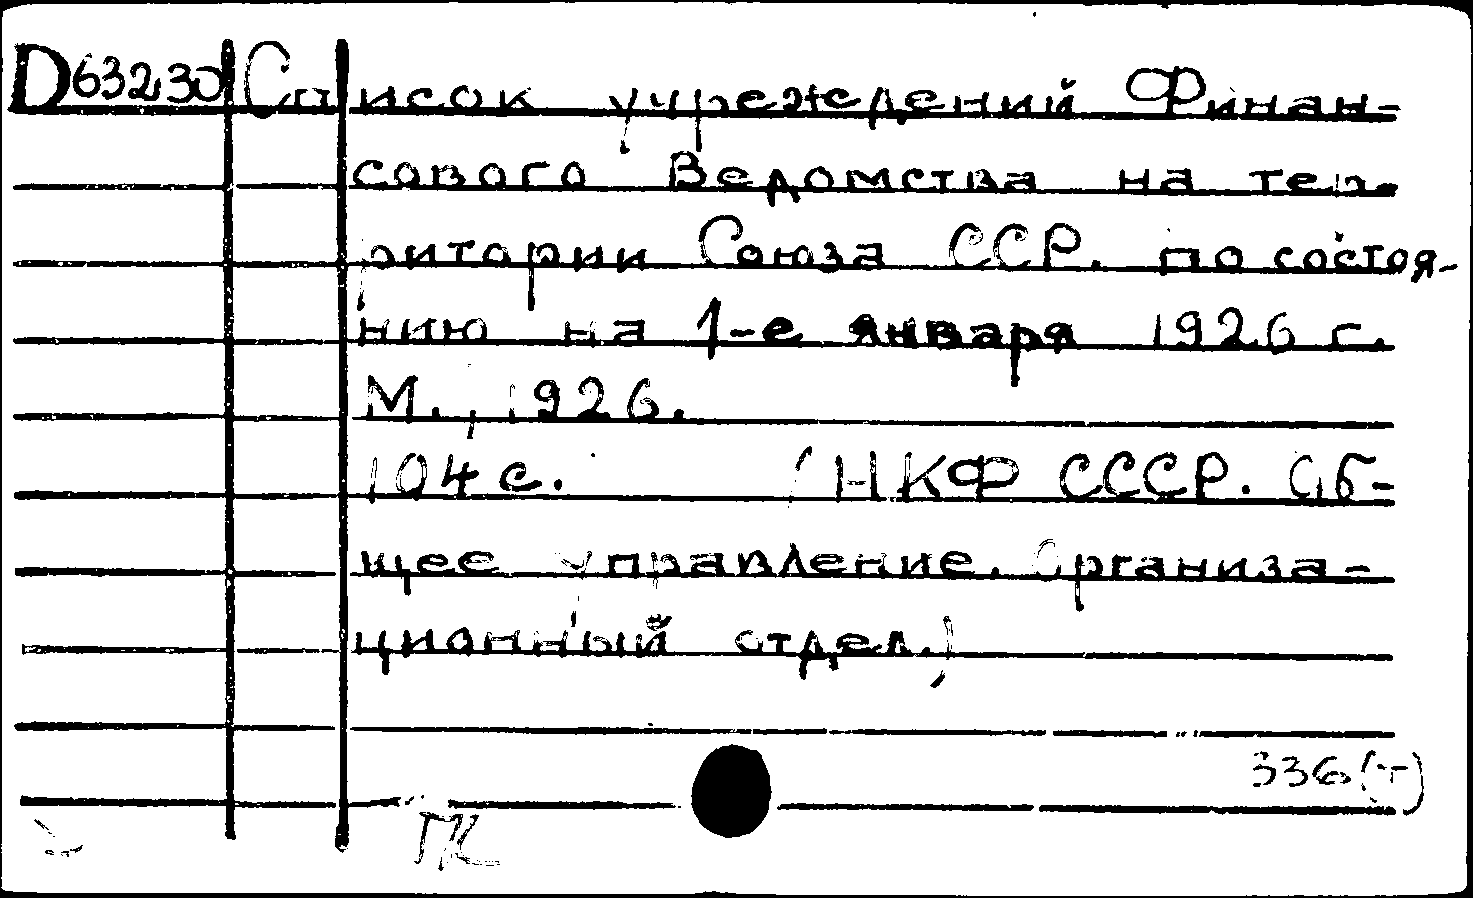 D 632/30 Список учреждений Финан-
сового Ведомства на тер-
ритории Союза ССР. по состоя-
нию на 1-е января 1926 г.
М., 1926.
104 с. (НКФ СССР. Об-
щее управление. Организа-
ционный отдел.)
336(т)
ГК